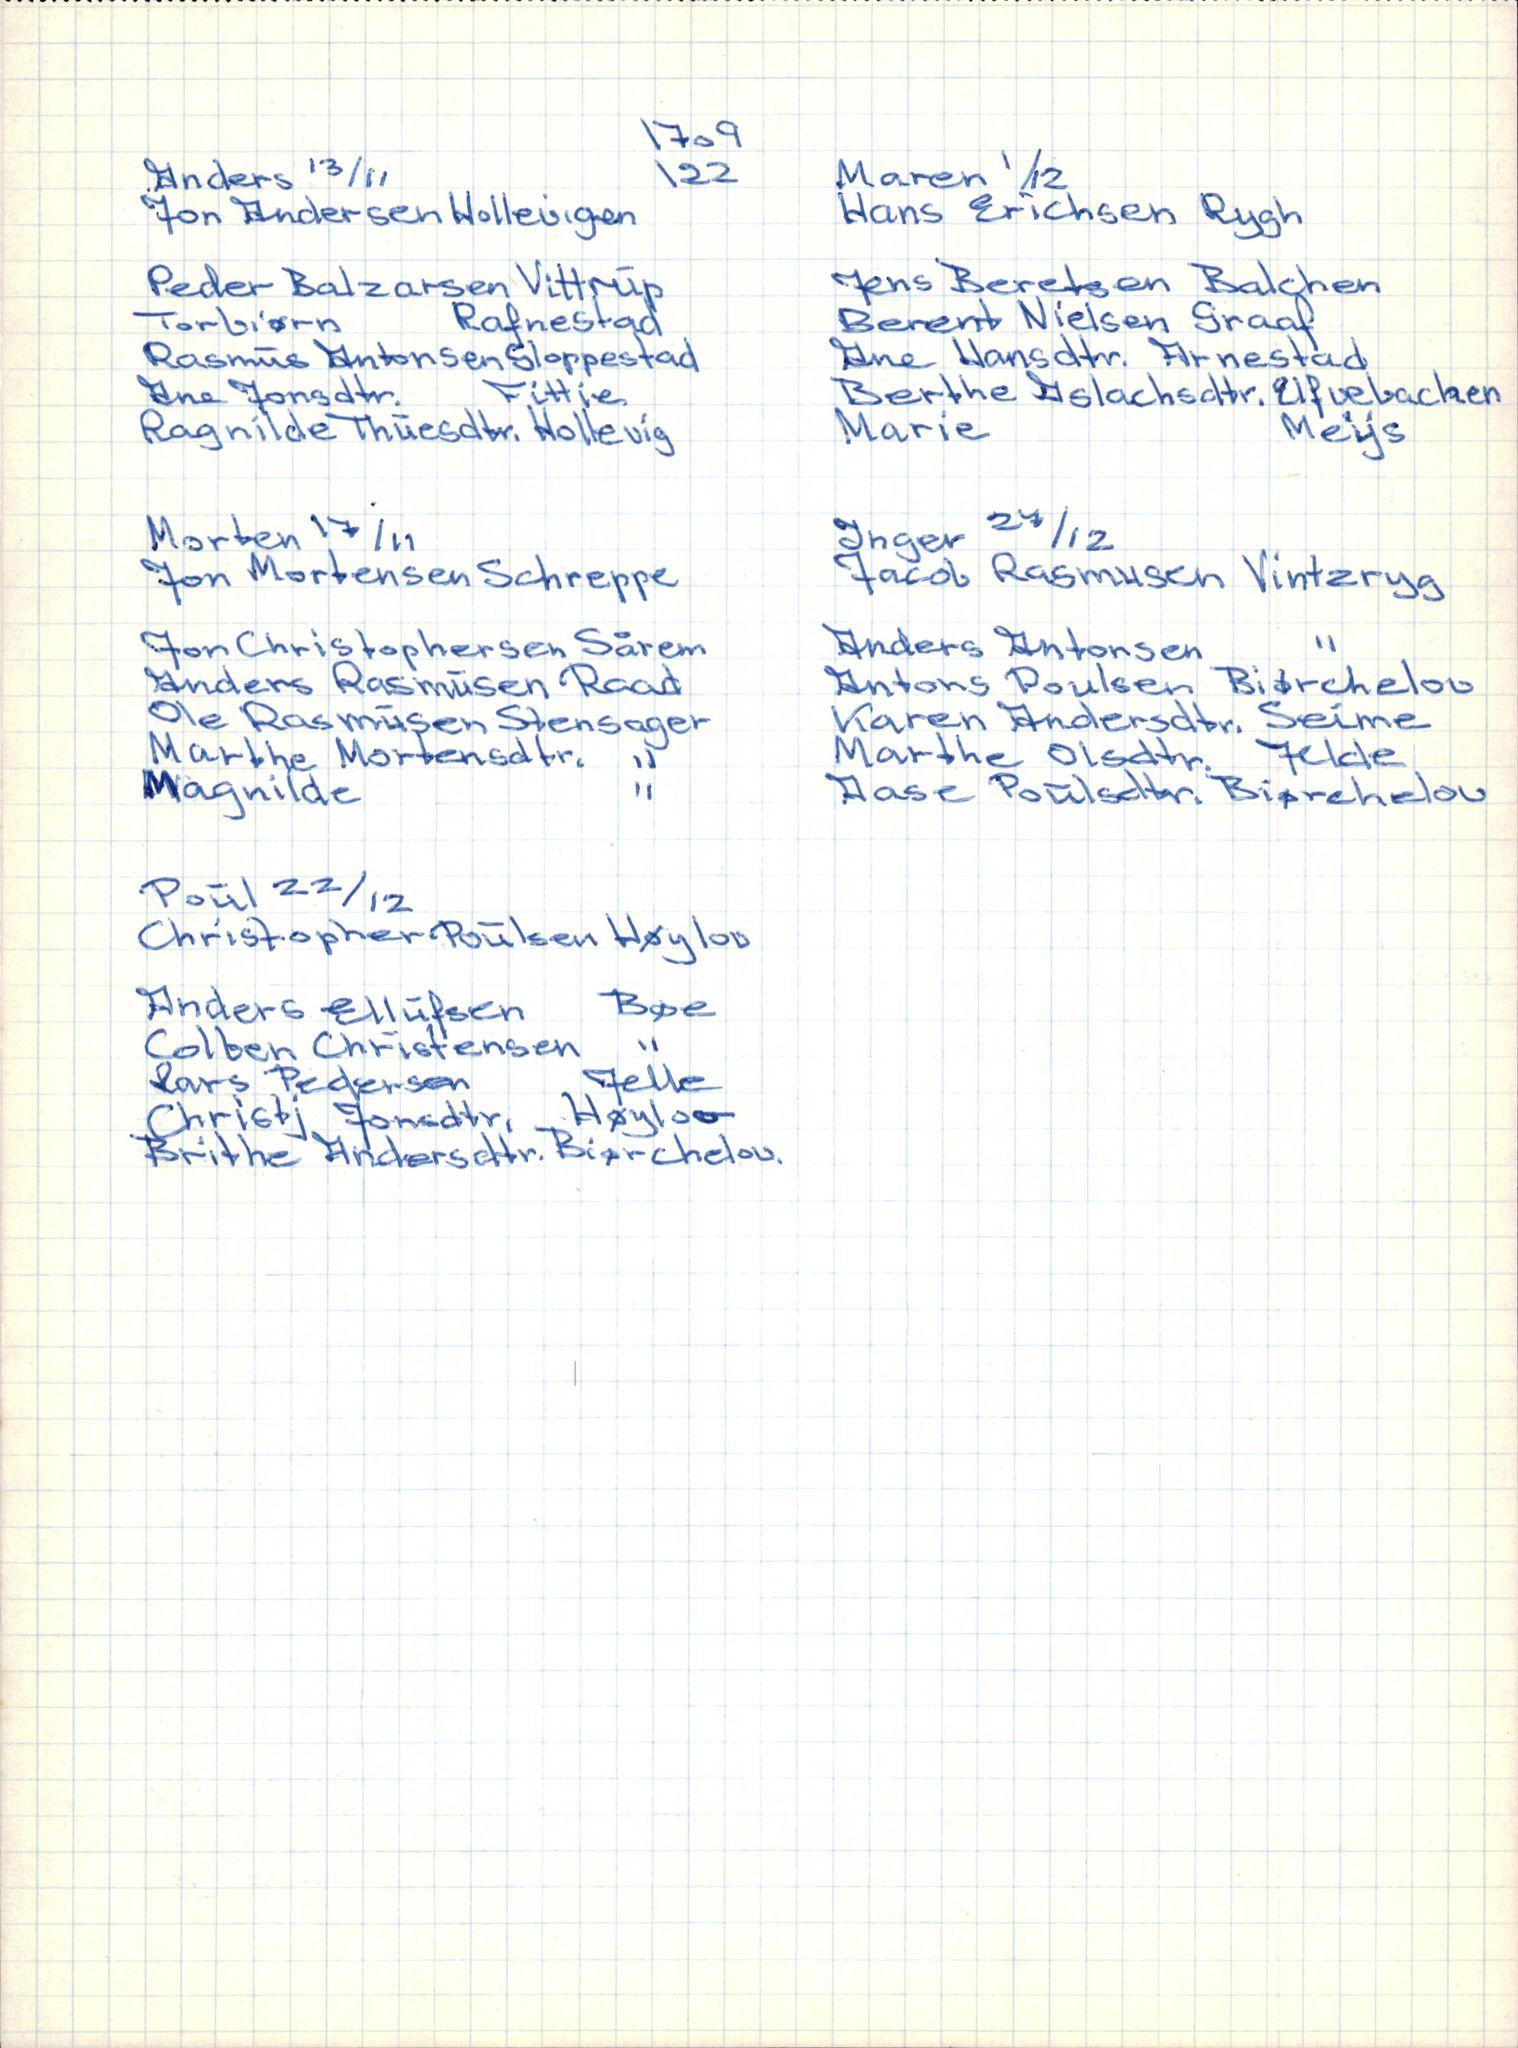 1709
122
Anders 13/11
Jon Andersen Hollevigen
Peder Balzarsen Vittrup
Torbiørn Rafnestad
Rasmus Antonsen Gloppestad
Ane Jonsdtr. Fittie
Ragnilde Thuesdtr. Hollevig
Morten 17/11
Jon Mortensen Schreppe
Jon Christophersen Sårem
Anders Rasmusen Raad
Ole Rasmusen Stensager
Marthe Mortensdtr. "
Magnilde "
Poul 22/12
Christopher Poulsen Høylov
Anders Ellufsen Bøe
Colben Christensen "
Lars Pedersen Jelle
Christj Jonsdtr. Høylov
Brithe Andersdtr. Biørchelov.
Maren 1/12
Hans Erichsen Rygh
Jens Beretsen Balchen
Berent Nielsen Graaf
Ane Hansdtr. Arnestad
Berthe Aslachsdtr. Elfvebachen
Marie Meijs
Inger 27/12
Jacob Rasmusen Vintzryg
Anders Antonsen "
Antons Poulsen Biørchelov
Karen Andersdtr. Seime
Marthe Olsdtr. Jelde
Aase Poulsdtr. Biørchelov